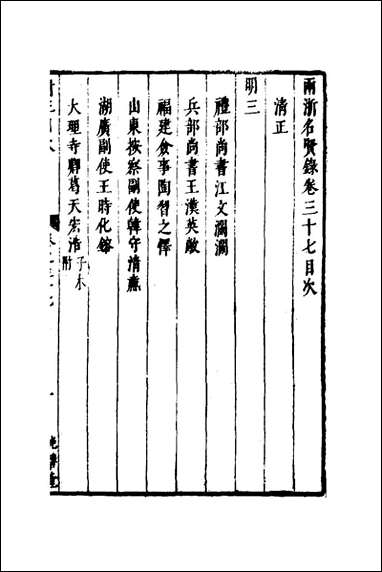 兩浙名賢錄卷三十七目次
清正
明三
禮部尚書江文瀾瀾
兵部尚書王漢英敞
福建僉事陶智之懌
山東按察副使韓守清廉
湖廣副使王時化鎔
大理寺卿葛天宏浩子木附